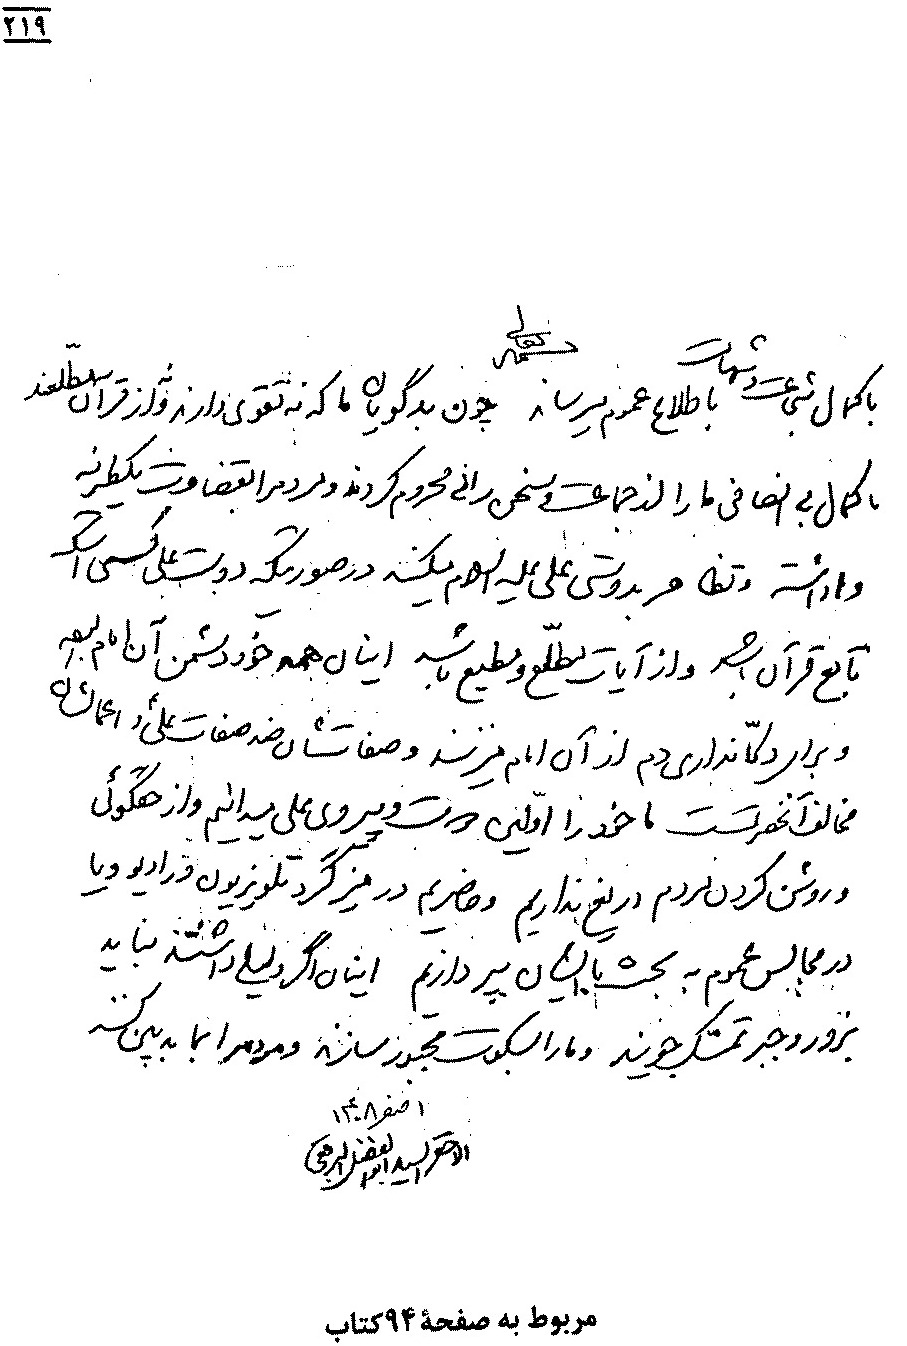 ۲۱۹
بسمه تعالی
با کمال شجاعت و شهامت باطلاع عموم میرساند چون بدگویان ما که نه تقوی دارند و نه از قرآن مطلعند
با کمال بی انصافی ما را از جماعت و سخن رانی محروم کردند و مردم را بقضاوت یکطرفه
واداشته و تظاهر بدوستی علی علیه السلام میکنند در صورتیکه دوست علی کسی است که
تابع قرآن باشد و از آیات مطلّع و مطیع باشد اینان همه خود دشمن آن امام
و برای دکّانداری دم از آن امام میزنند و صفاتشان ضد صفات علی و اعمالشان
مخالف آنحضرتست ما خود را اوّلین دوست و پیرو علی میدانیم و از حقگوئی
و روشن کردن مردم دریغ نداریم و حاضریم در میزگرد تلویزیون و رادیو و یا
در مجالس عموم به بحث با ایشان بپردازیم اینان اگر دلیلی داشتند نباید
بزور و جبر تمسّک جویند و ما را بسکوت مجبور سازند و مردم را بما بدبین کنند
۱ صفر ۱۴۰۸
الاحقر السید ابوالفضل البرقعی
مربوط به صفحهٔ ۹۴ کتاب